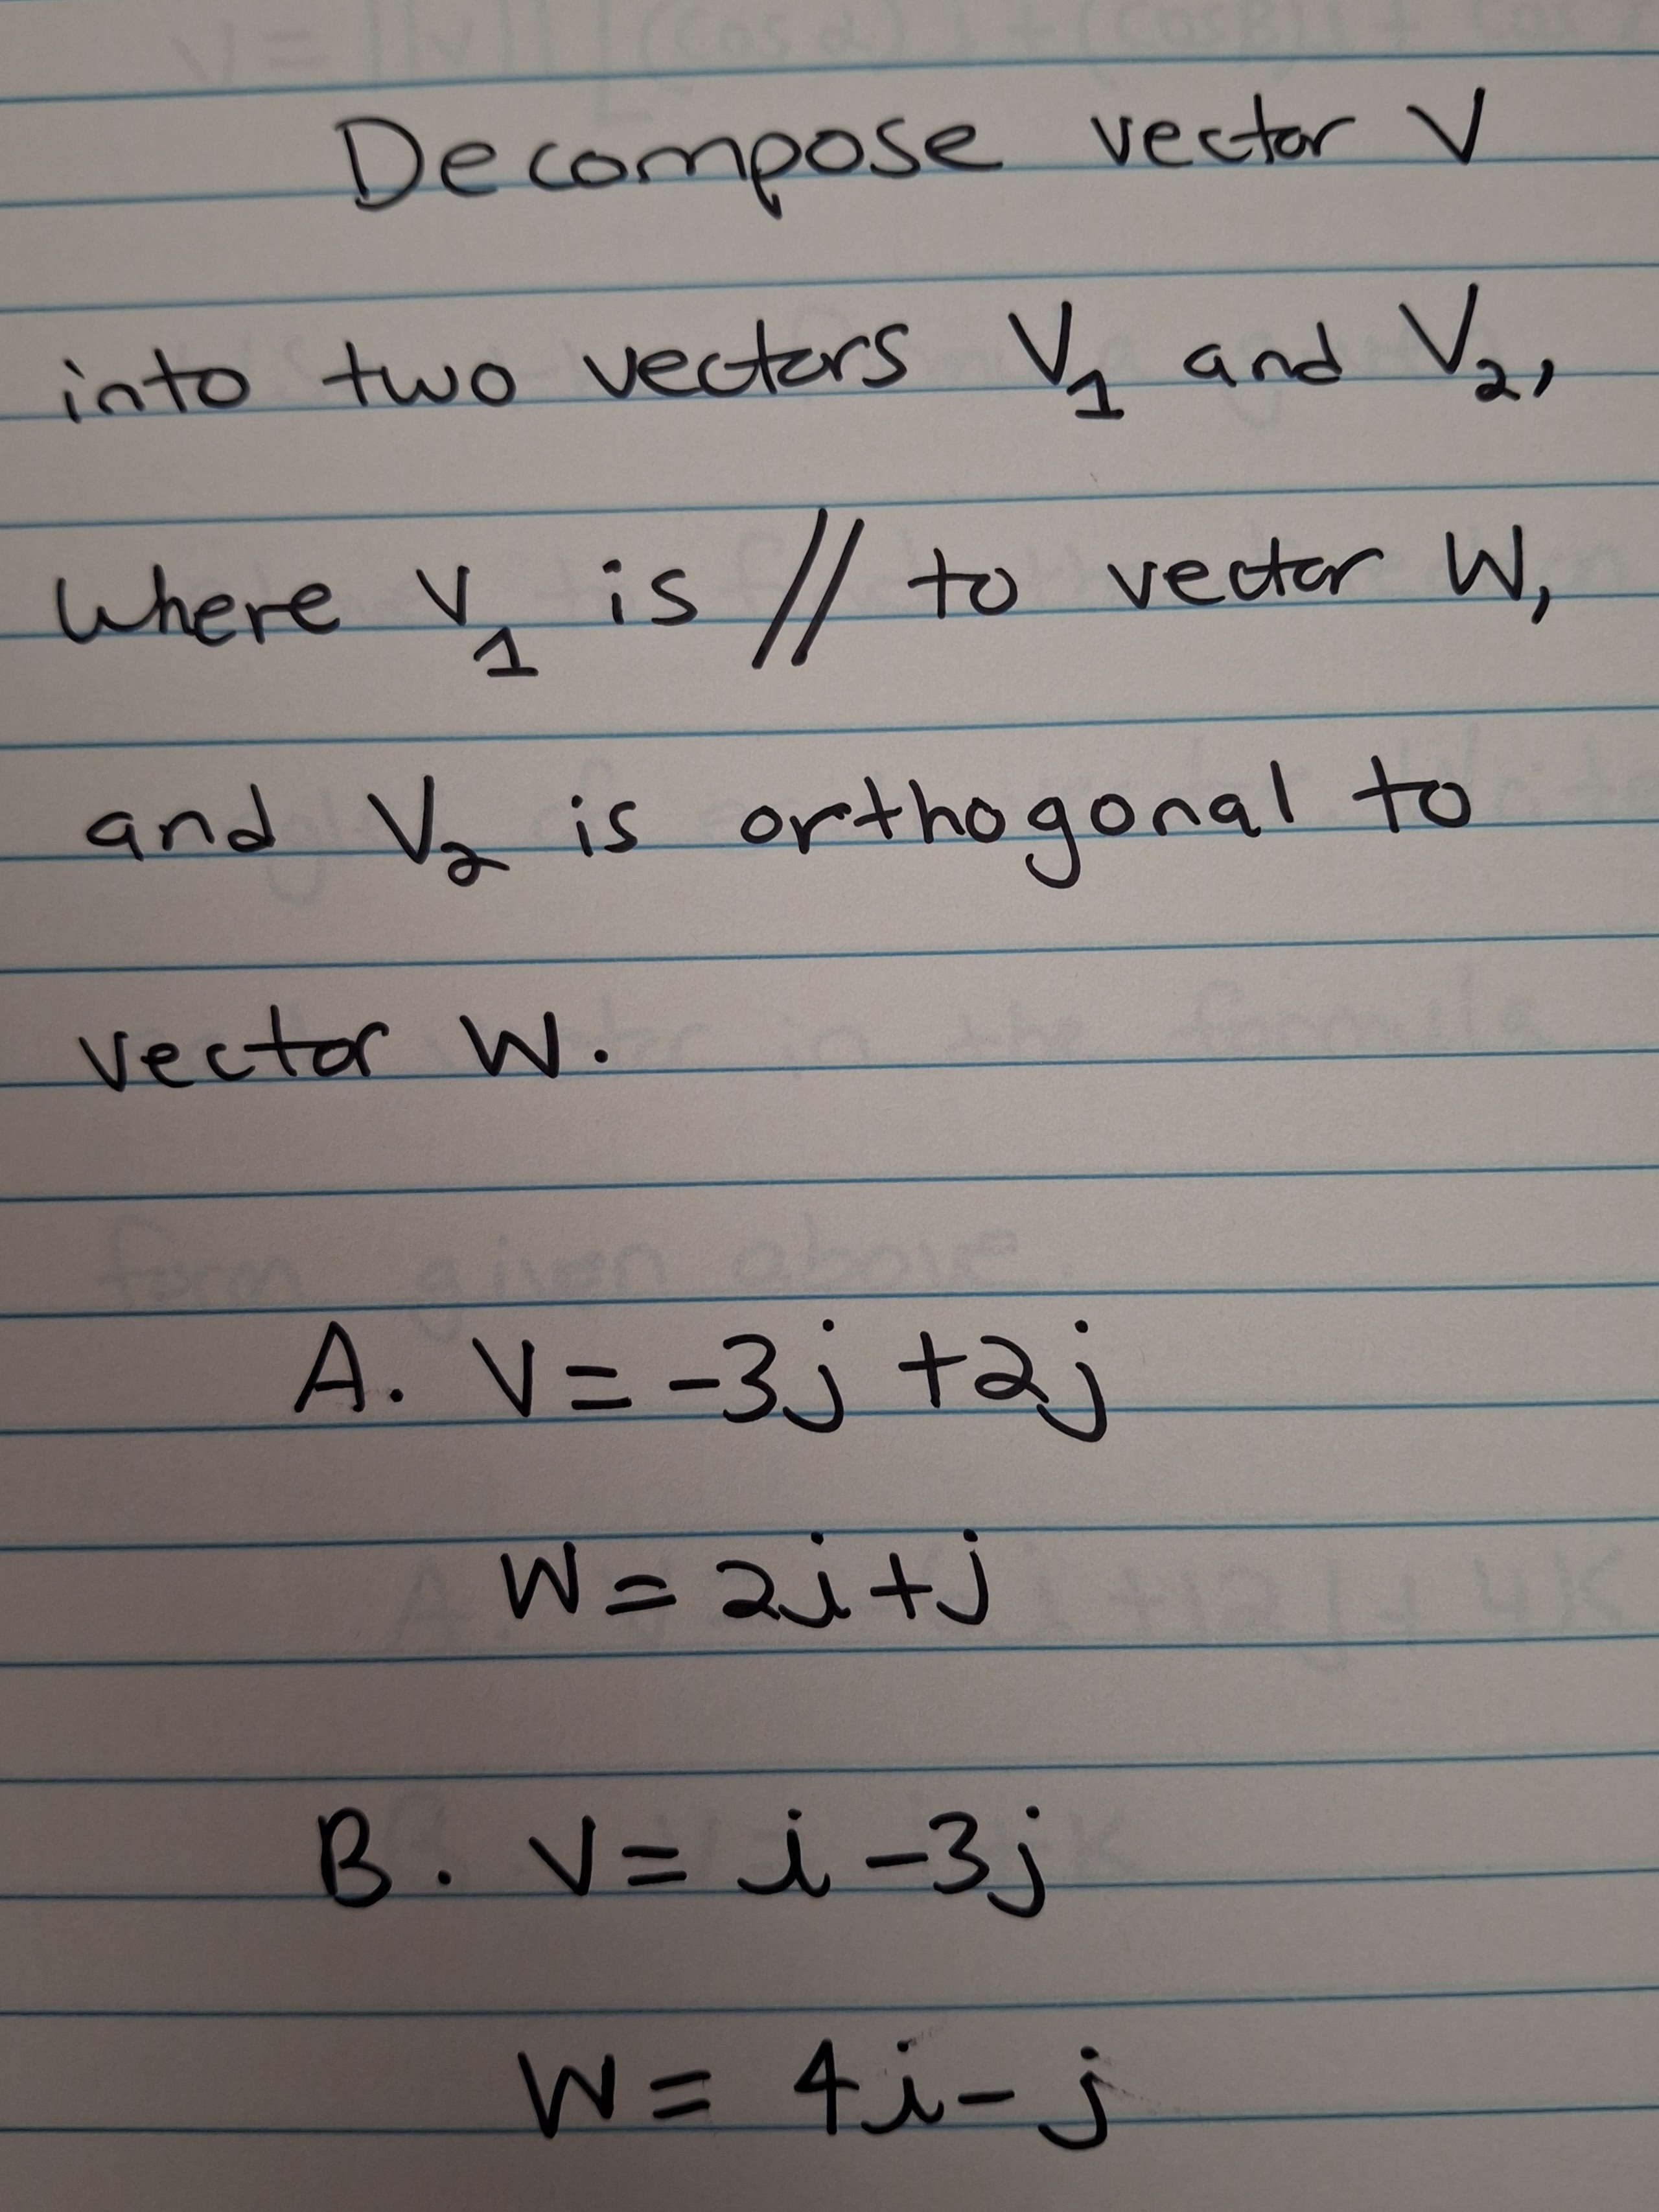 Decompose vector V
into two vectors V₁ and V₂,
where V₁ is // to vector W,
and V₂ is orthogonal to
vector W.
A. V = -3j + 2j
W = 2i + j
B. V = i - 3j
W = 4i - j